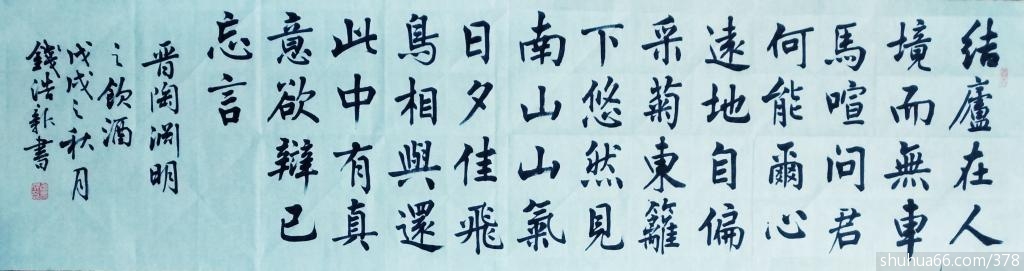 結廬在人
境而無車
馬喧問君
何能爾心
遠地自偏
采菊東籬
下悠然見
南山山氣
日夕佳飛
鳥相與還
此中有真
意欲辯已
忘言
晋陶渊明
之飲酒
戊戌之秋月
錢浩新書
shuhua66.com/378